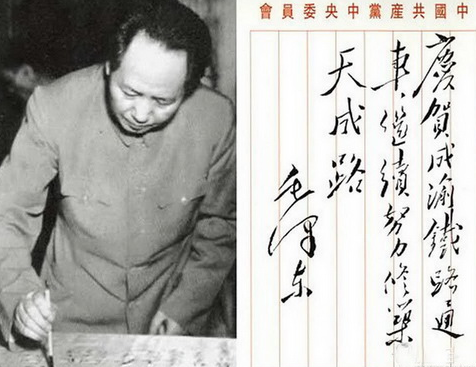 中國共産黨中央委員會
慶賀成渝鐵路通
車，继續努力修築
天成路
毛泽东